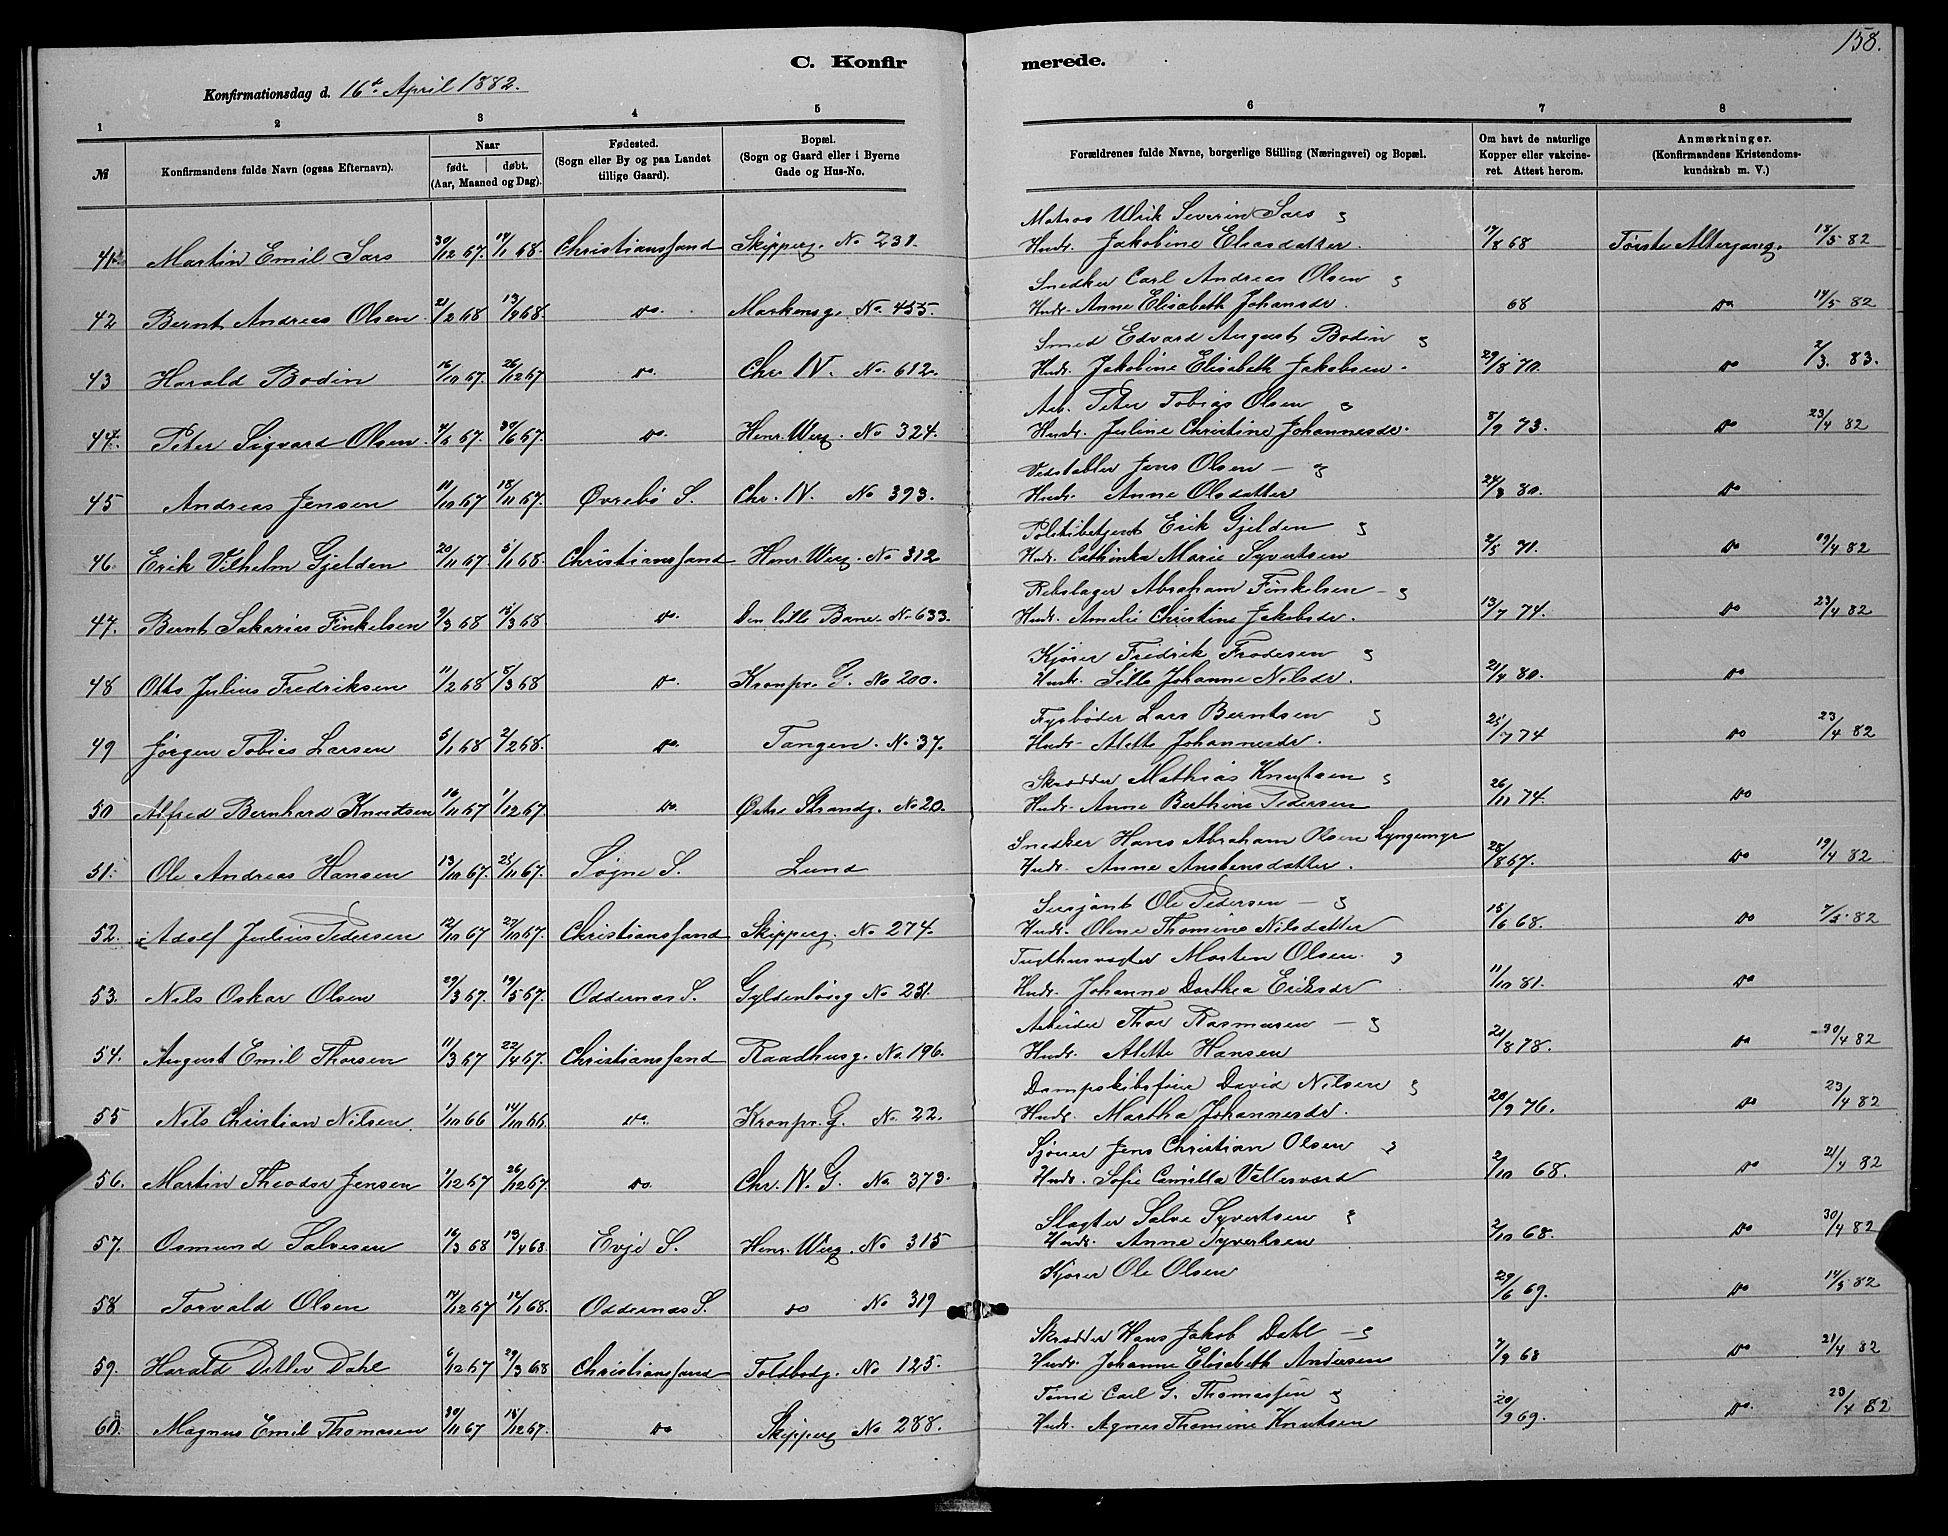 158.
C. Konfirmerede.
Konfirmationsdag d. 16de April 1882.
1 2 3 4 5 6 7 8
№ Konfirmandens fulde Navn (ogsaa Efternavn). Naar født. døbt. (Aar, Maaned og Dag). Fødested. (Sogn eller By og paa Landet tillige Gaard). Bopæl. (Sogn og Gaard eller i Byerne Gade og Hus-No. Forældrenes fulde Navne, borgerlige Stilling (Næringsvei) og Bopæl. Om havt de naturlige Kopper eller vakcineret. Attest herom. Anmærkninger. (Konfirmandens Kristendomskundskab m. V.)
Matros Ulrik Severin Sars og
41 Martin Emil Sars 30/12 67. 14/1 68 Christianssand Skipperg. No 231. Hustr. Jakobine Eliasdatter. 17/8 68 Første Altergang. 18/5 82
Snedker Carl Andreas Olsen og
42 Bernt Andreas Olsen 21/2 68 13/4 68. do. Markensg. No. 455. Hustr. Anne Elisabeth Johansdr. 68 do 14/5 82
Smed Edvard August Bodin og
43 Harald Bodin 16/10 67. 26/12 67 do. Chr. N. No. 612. Hustr. Jakobine Elisabeth Jakobsen. 29/8 70. do 2/3. 83.
Arb. Peter Tobias Olsen og
44. Peter Sigvard Olsen. 4/6 67. 30/6 67. do. Henr. Werg. No 324. Hustr. Juline Christine Johannesdr. 8/9 73. do 23/4 82
Vedstabler Jens Olsen – og
45 Andreas Jensen 11/10 67 18/11 67. Øvrebø S. Chr. N. No 393. Hustr. Anne Olsdatter 24/3 80. do
Politibetjent Erik Gjelden og
46. Erik Vilhelm Gjelden 20/11 67 5/1 68. Christianssand Henr. Werg. No. 312 Hustr. Cathinka Marie Syvertsen 2/5 71. do 19/4 82
Rebslager Abraham Finkelsen – og
47. Bernt Sakarias Finkelsen 9/3 68 15/3 68 do. Den lille Bane. No. 633. Hustr. Amalie Christine Jakobsdr. 13/7 74. do 23/4 82
Kjører Fredrik Frodesen og
48 Otto Julius Fredriksen 11/2 68 8/3 68 do. Kronpr. G. No 200. Hustr. Sille Johanne Nilsdr. 21/4 80. do
Fyrbøder Lars Berntsen og
49 Jørgen Tobias Larsen 5/1 68 2/2 68. do. Tangen. No. 37. Hustr. Alette Johannesdr. 25/7 74 do 23/4 82
Skrædder Mathias Knutsen og
50 Alfred Bernhard Knudtsen 16/11 67 1/12 67 do. Østre Strandg. No 20. Hustr. Anne Berthine Pedersen 26/11 74. do
Snedker Hans Abraham Olsen Lyngemyr
51. Ole Andreas Hansen 13/10 67. 25/11 67. Søgne S. Lund Hustr. Anne Anstensdatter. 28/8 67. do 19/4 82
Sersjant Ole Pedersen – og
52. Adolf Julius Pedersen 12/10 67 27/10 67. Christianssand Skipperg. No 274. Hustr. Olene Thomine Nilsdatter 15/6 68. do 7/5 82
Tugthusvagter Morten Olsen. og
53. Nils Oskar Olsen 29/3 67. 19/5 67. Oddernæs S. Gyldenløvsg No 251. Hustr. Johanne Dorthea Eriksdr 11/10 81. do
Arbeider Thor Rasmusen – og
54. August Emil Thorsen 11/3 67 22/4 67. Christianssand Raadhusg. No. 196. Hustr. Alette Hansen 21/8 78. do 30/4 82
Dampskibsfører David Nilsen og
55 Nils Christian Nilsen. 1/10 66 14/10 66 do. Kronpr. G. No 22. Hustr. Martha Johannesdr. 20/9 76. do 23/4 82
Sjøner Jens Christian Olsen og
56. Martin Theodor Jensen 1/12 67 26/12 67. do. Chr. N. G. No. 373. Hustr. Sofie Camilla Vallesværd 2/10 68. do 21/4 82
Slagter Salve Syvertsen og
57. Osmund Salvesen 16/3 68 13/4 68. Evje S. Henr. Werg. No 315 Hustr. Anne Syvertsen 2/10 68. do 30/4 82
Kjører Ole Olsen
58 Torvald Olsen 14/12 67 12/1 68. Oddernæs S. do No 319 29/6 69. do 14/5 82
Skrædder Hans Jakob Dahl – og
59. Harald Detlev Dahl 6/12 67 29/3 68 Christianssand Toldbodg. No 125. Hustr. Johanne Elisabeth Andersen 7/9 68 do 21/4 82
Tømd Carl G. Thomassen og
60. Magnus Emil Thomasen 30/11 67 15/12 67. do Skipperg No 288. Hustr. Agnes Thomine Knutsen 20/9 69. do. 23/4 82